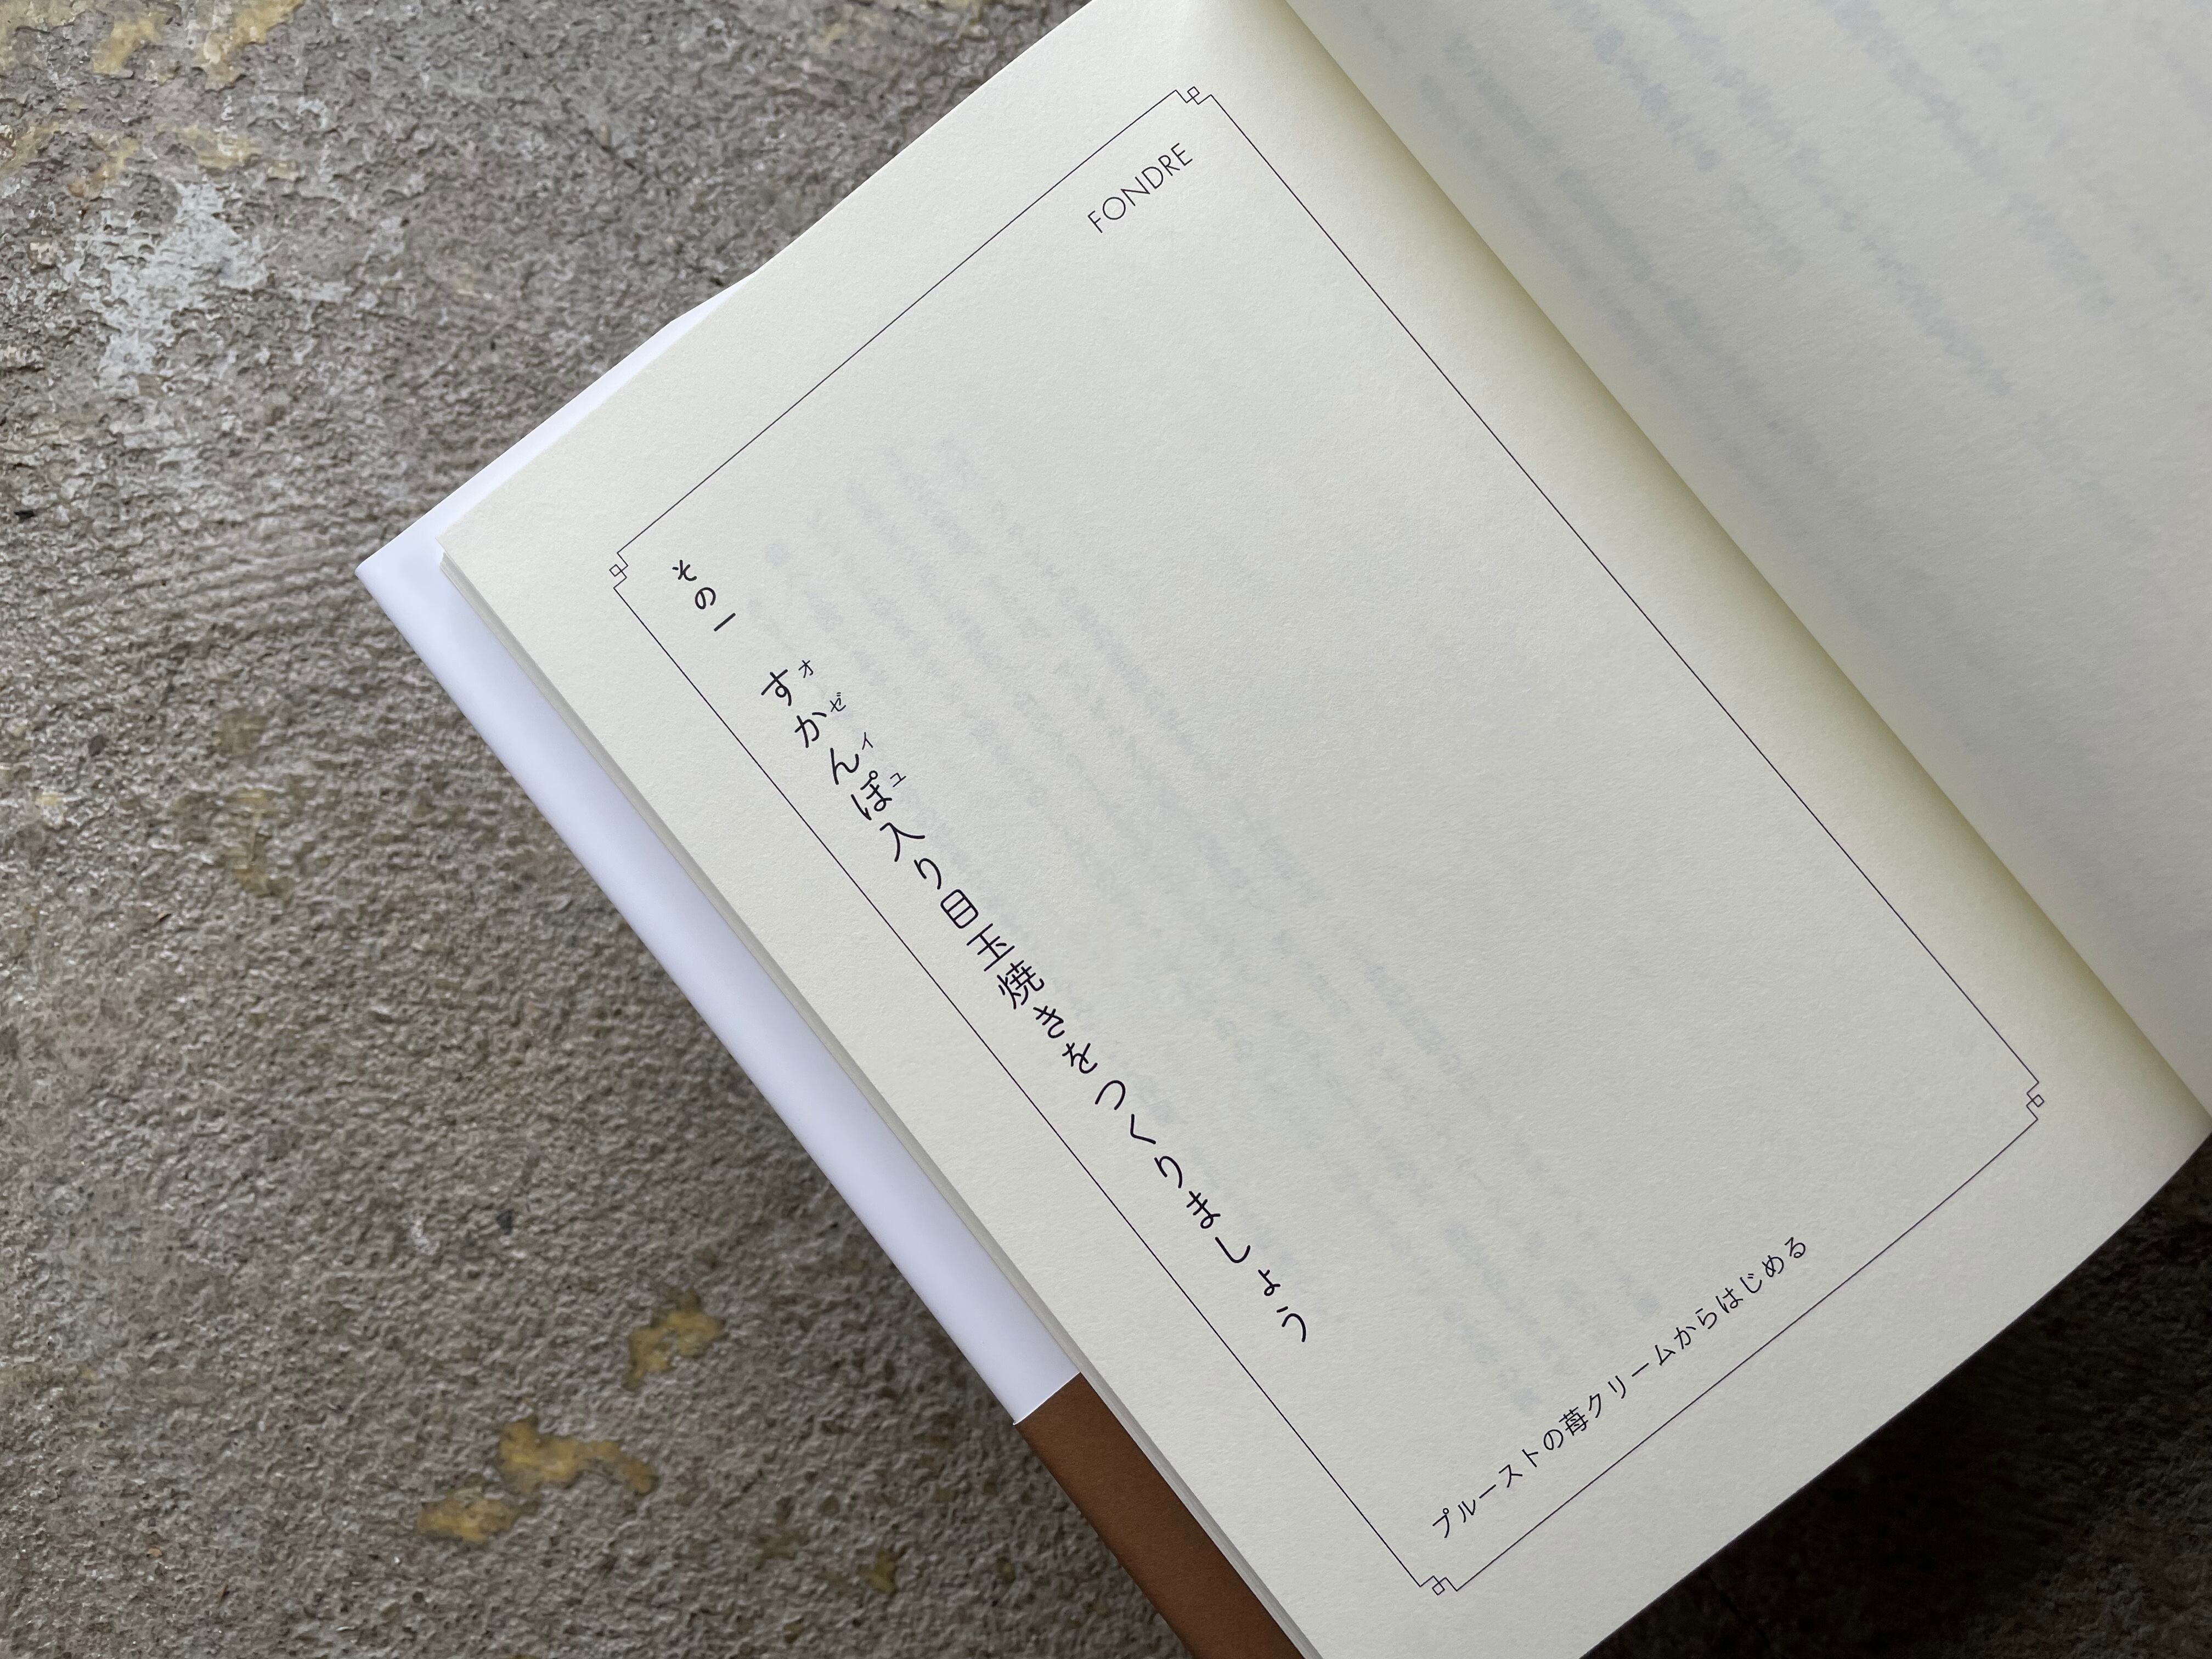 FONDRE
その一 すかんぽ入り目玉焼きをつくりましょう
オゼイユ
プルーストの苺クリームからはじめる